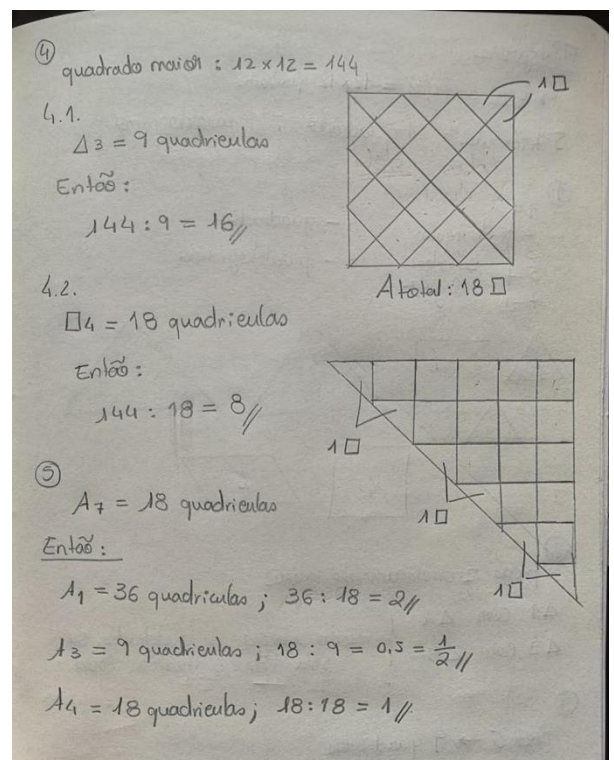 ④
quadrado maior : 12 × 12 = 144
1 □
4.1.
Δ3 = 9 quadrículas
Então :
144 : 9 = 16//
A total : 18 □
4.2.
□4 = 18 quadrículas
Então :
144 : 18 = 8//
1 □
1 □
1 □
⑤
A7 = 18 quadrículas
Então :
A1 = 36 quadrículas ; 36 : 18 = 2//
A3 = 9 quadrículas ; 18 : 9 = 0,5 = 1/2//
A4 = 18 quadrículas ; 18 : 18 = 1//